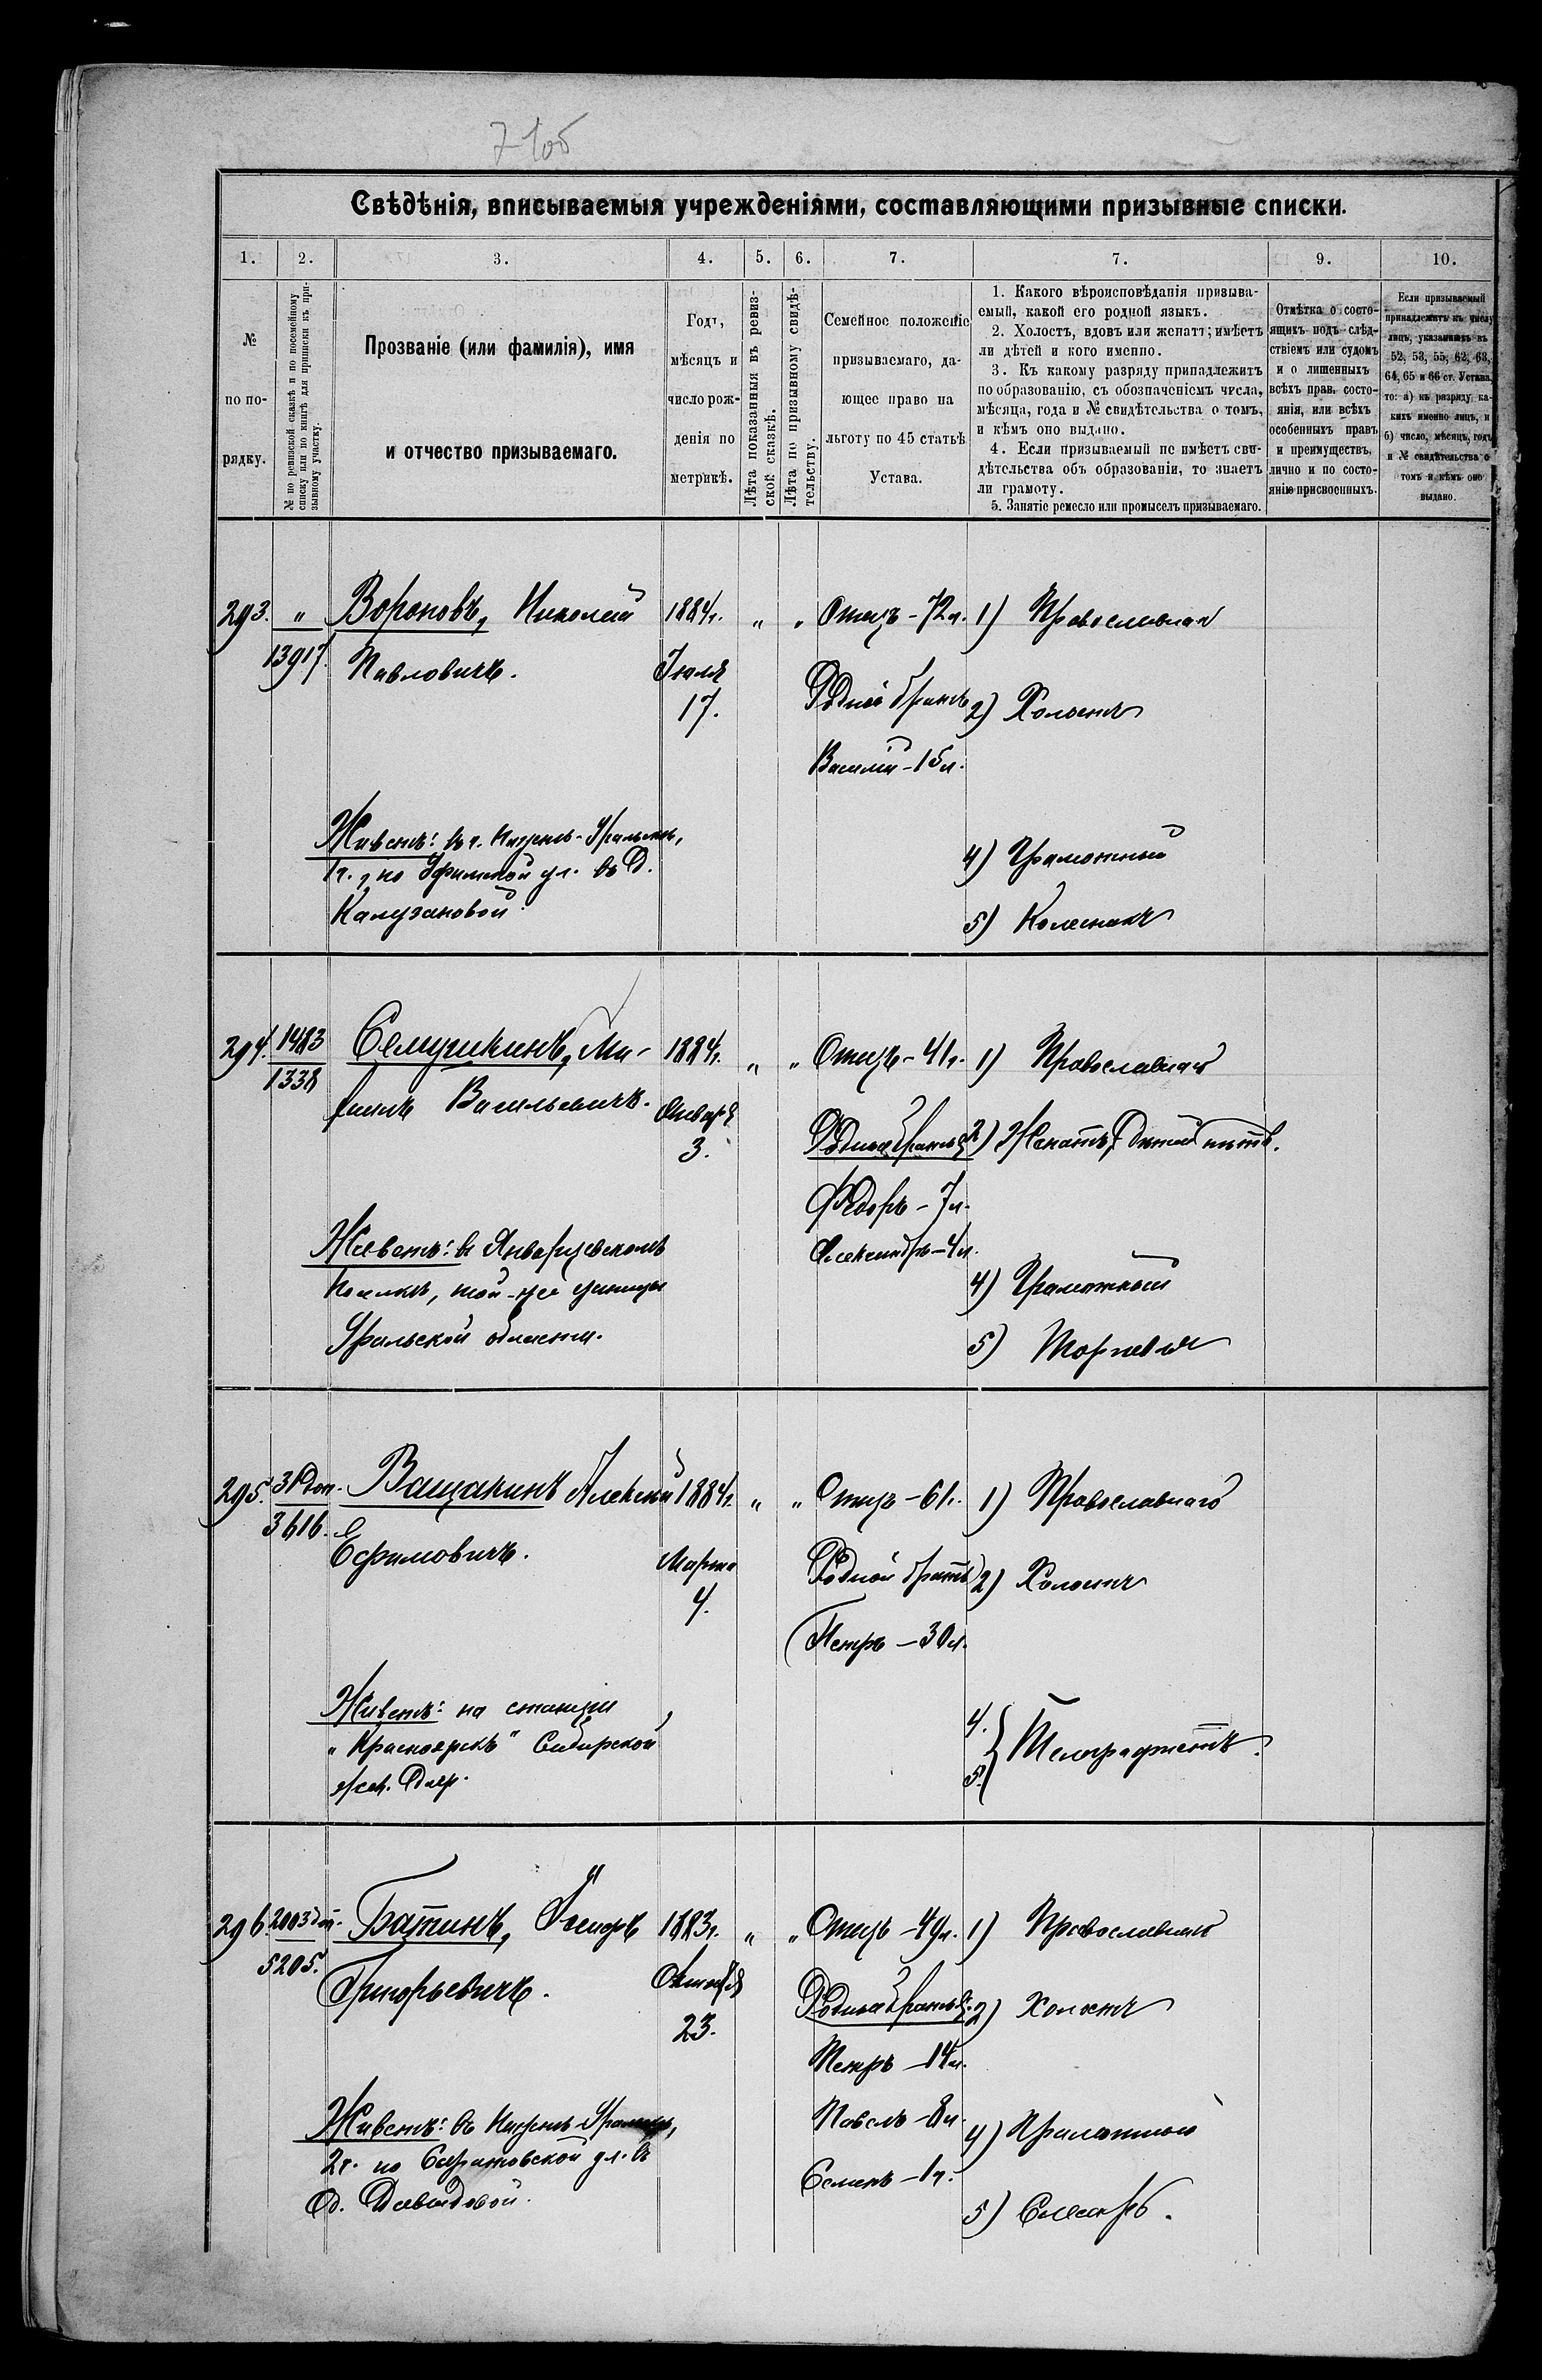 7 1об
Свѣдѣнія, вписываемыя учрежденіями, составляющими призывные списки.
1. 2. 3. 4. 5. 6. 7. 7. 9. 10.
№ по порядку.
№ по ревизской сказкѣ и по посемейному списку или по книгѣ для приписки къ призывному участку.
Прозваніе (или фамилія), имя
и отчество призываемаго.
Годъ,
мѣсяцъ и
число рож-
денія по
метрикѣ.
Лѣта показанныя въ ревиз-
ской сказкѣ.
Лѣта по призывному свидѣ-
тельству.
Семейное положеніе
призываемаго, да-
ющее право на
льготу по 45 статьѣ
Устава.
1. Какого вѣроисповѣданія призыва-
емый, какой его родной языкъ.
2. Холостъ, вдовъ или женатъ; имѣетъ
ли дѣтей и кого именно.
3. Къ какому разряду принадлежитъ
по образованію, съ обозначеніемъ числа,
мѣсяца, года и № свидѣтельства о томъ,
и кѣмъ оно выдано.
4. Если призываемый не имѣетъ сви-
дѣтельства объ образованіи, то знаетъ
ли грамоту.
5. Занятіе ремесло или промыселъ призываемаго.
Отмѣтка о состо-
ящихъ подъ слѣд-
ствіемъ или судомъ
и о лишенныхъ
всѣхъ прав. состо-
янія, или всѣхъ
особенныхъ правъ
и преимуществъ,
лично и по состо-
янію присвоенныхъ.
Если призываемый
принадлежитъ къ числу
лицъ, указанныхъ въ
52, 53, 55, 62, 63,
64, 65 и 66 ст. Устава,
то: а) къ разряду ка-
кихъ именно лицъ, и
б) число, мѣсяцъ, годъ
и № свидѣтельства о
томъ и кѣмъ оно
выдано.
293. " Вороновъ, Николай 1884г. " " Отецъ - 72л. 1) Православнаго
13917. Павловичъ. Іюля
17.
Родной братъ 2) Холостъ
Василій - 15л.
Живетъ: въ г. Уральскѣ,
1ч., по Уфимской ул. въ д.
Калузановой.
4) Грамотный
5) Колесникъ
294. 1483 Семушкинъ, Ми- 1884г. " " Отецъ - 41г. 1) Православнаго
1338 хаилъ Васильевичъ. Января
3.
Родные братья: 2) Женатъ, дѣтей нѣтъ.
Федоръ - 7л.
Александръ - 4л.
Живетъ: въ Январцевскомъ
поселкѣ, той-же станицы
Уральской области.
4) Грамотный
5) Торговля
295. 31 доп. Ващакинъ Алексѣй 1884г. " " Отецъ - 61г. 1) Православнаго
3616. Ефимовичъ. Марта
4.
Родной братъ 2) Холостъ
Петръ - 30л.
Живетъ: на станціи
"Красноярскъ" Сибирской
жел. дор.
4.
5. Телеграфистъ.
296. 2003 доп. Батинъ, Федоръ 1883г. " " Отецъ - 49л. 1) Православнаго
5205. Григорьевичъ. Октября
23.
Родные братья: 2) Холостъ
Петръ - 14л.
Павелъ - 8л.
Семенъ - 1г.
Живетъ: въ Уральскѣ,
2ч. по Саратовской ул. въ
д. Давыдовой.
4) Грамотный
5) Слесарь.